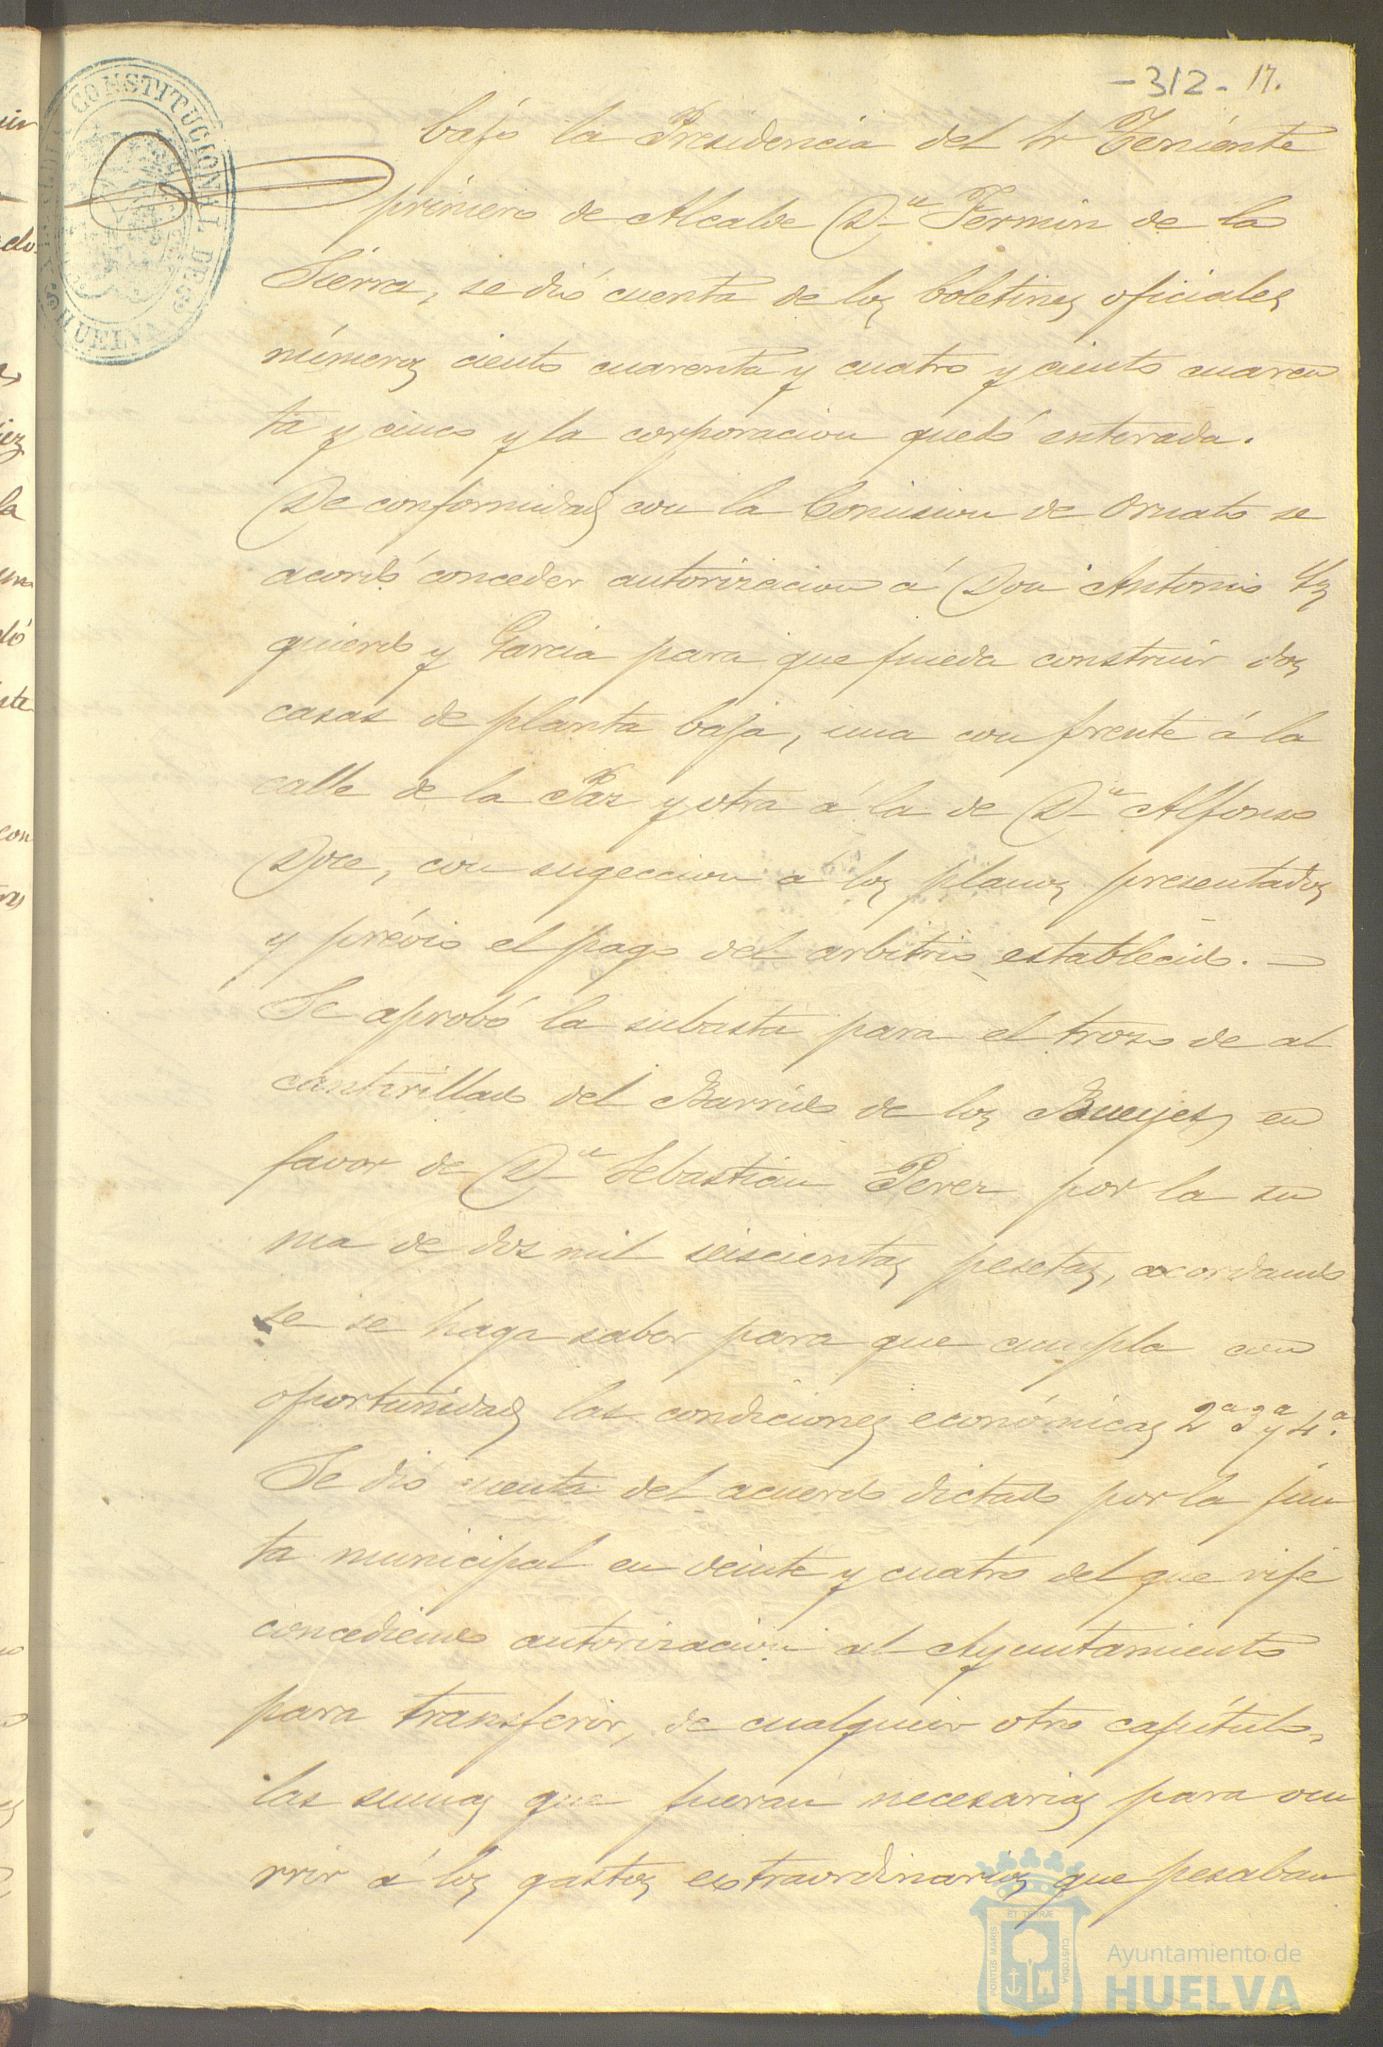 - 312 - 17.
bajo la Presidencia del Sr Teniente
primero de Alcalde Dn Fermin de la
Sierra, se dió cuenta de los boletines oficiales
números ciento cuarenta y cuatro y ciento cuaren
ta y cinco y la corporacion quedó enterada.
De conformidad con la Comision de Ornato se
acordó conceder autorizacion á Don Antonio Yz
quierdo y Garcia para que pueda construir dos
casas de planta baja, una con frente á la
calle de la Paz y otra á la de Dn Alfonso
Doce, con sugeccion á los planos presentados
y prévio el pago del arbitrio establecido. —
Se aprobó la subasta para el trozo de al
cantarillado del Barrio de los Bueyes, en
favor de Dn Sebastian Perez por la su
ma de dos mil seiscientas pesetas, acordando
se se haga saber para que cumpla con
oportunidad las condiciones económicas 2ª 3ª y 4ª.
Se dió cuenta del acuerdo dictado por la jun
ta municipal en veinte y cuatro del que rije
concediendo autorizacion al Ayuntamiento
para transferir, de cualquier otro capítulo,
las sumas que fueran necesarias para ocu
rrir á los gastos extraordinarios que pesaban
CONSTITUCIONAL DE
HUELVA
PORTUS MARIS
ET TERRÆ
CUSTODIA
Ayuntamiento de
HUELVA